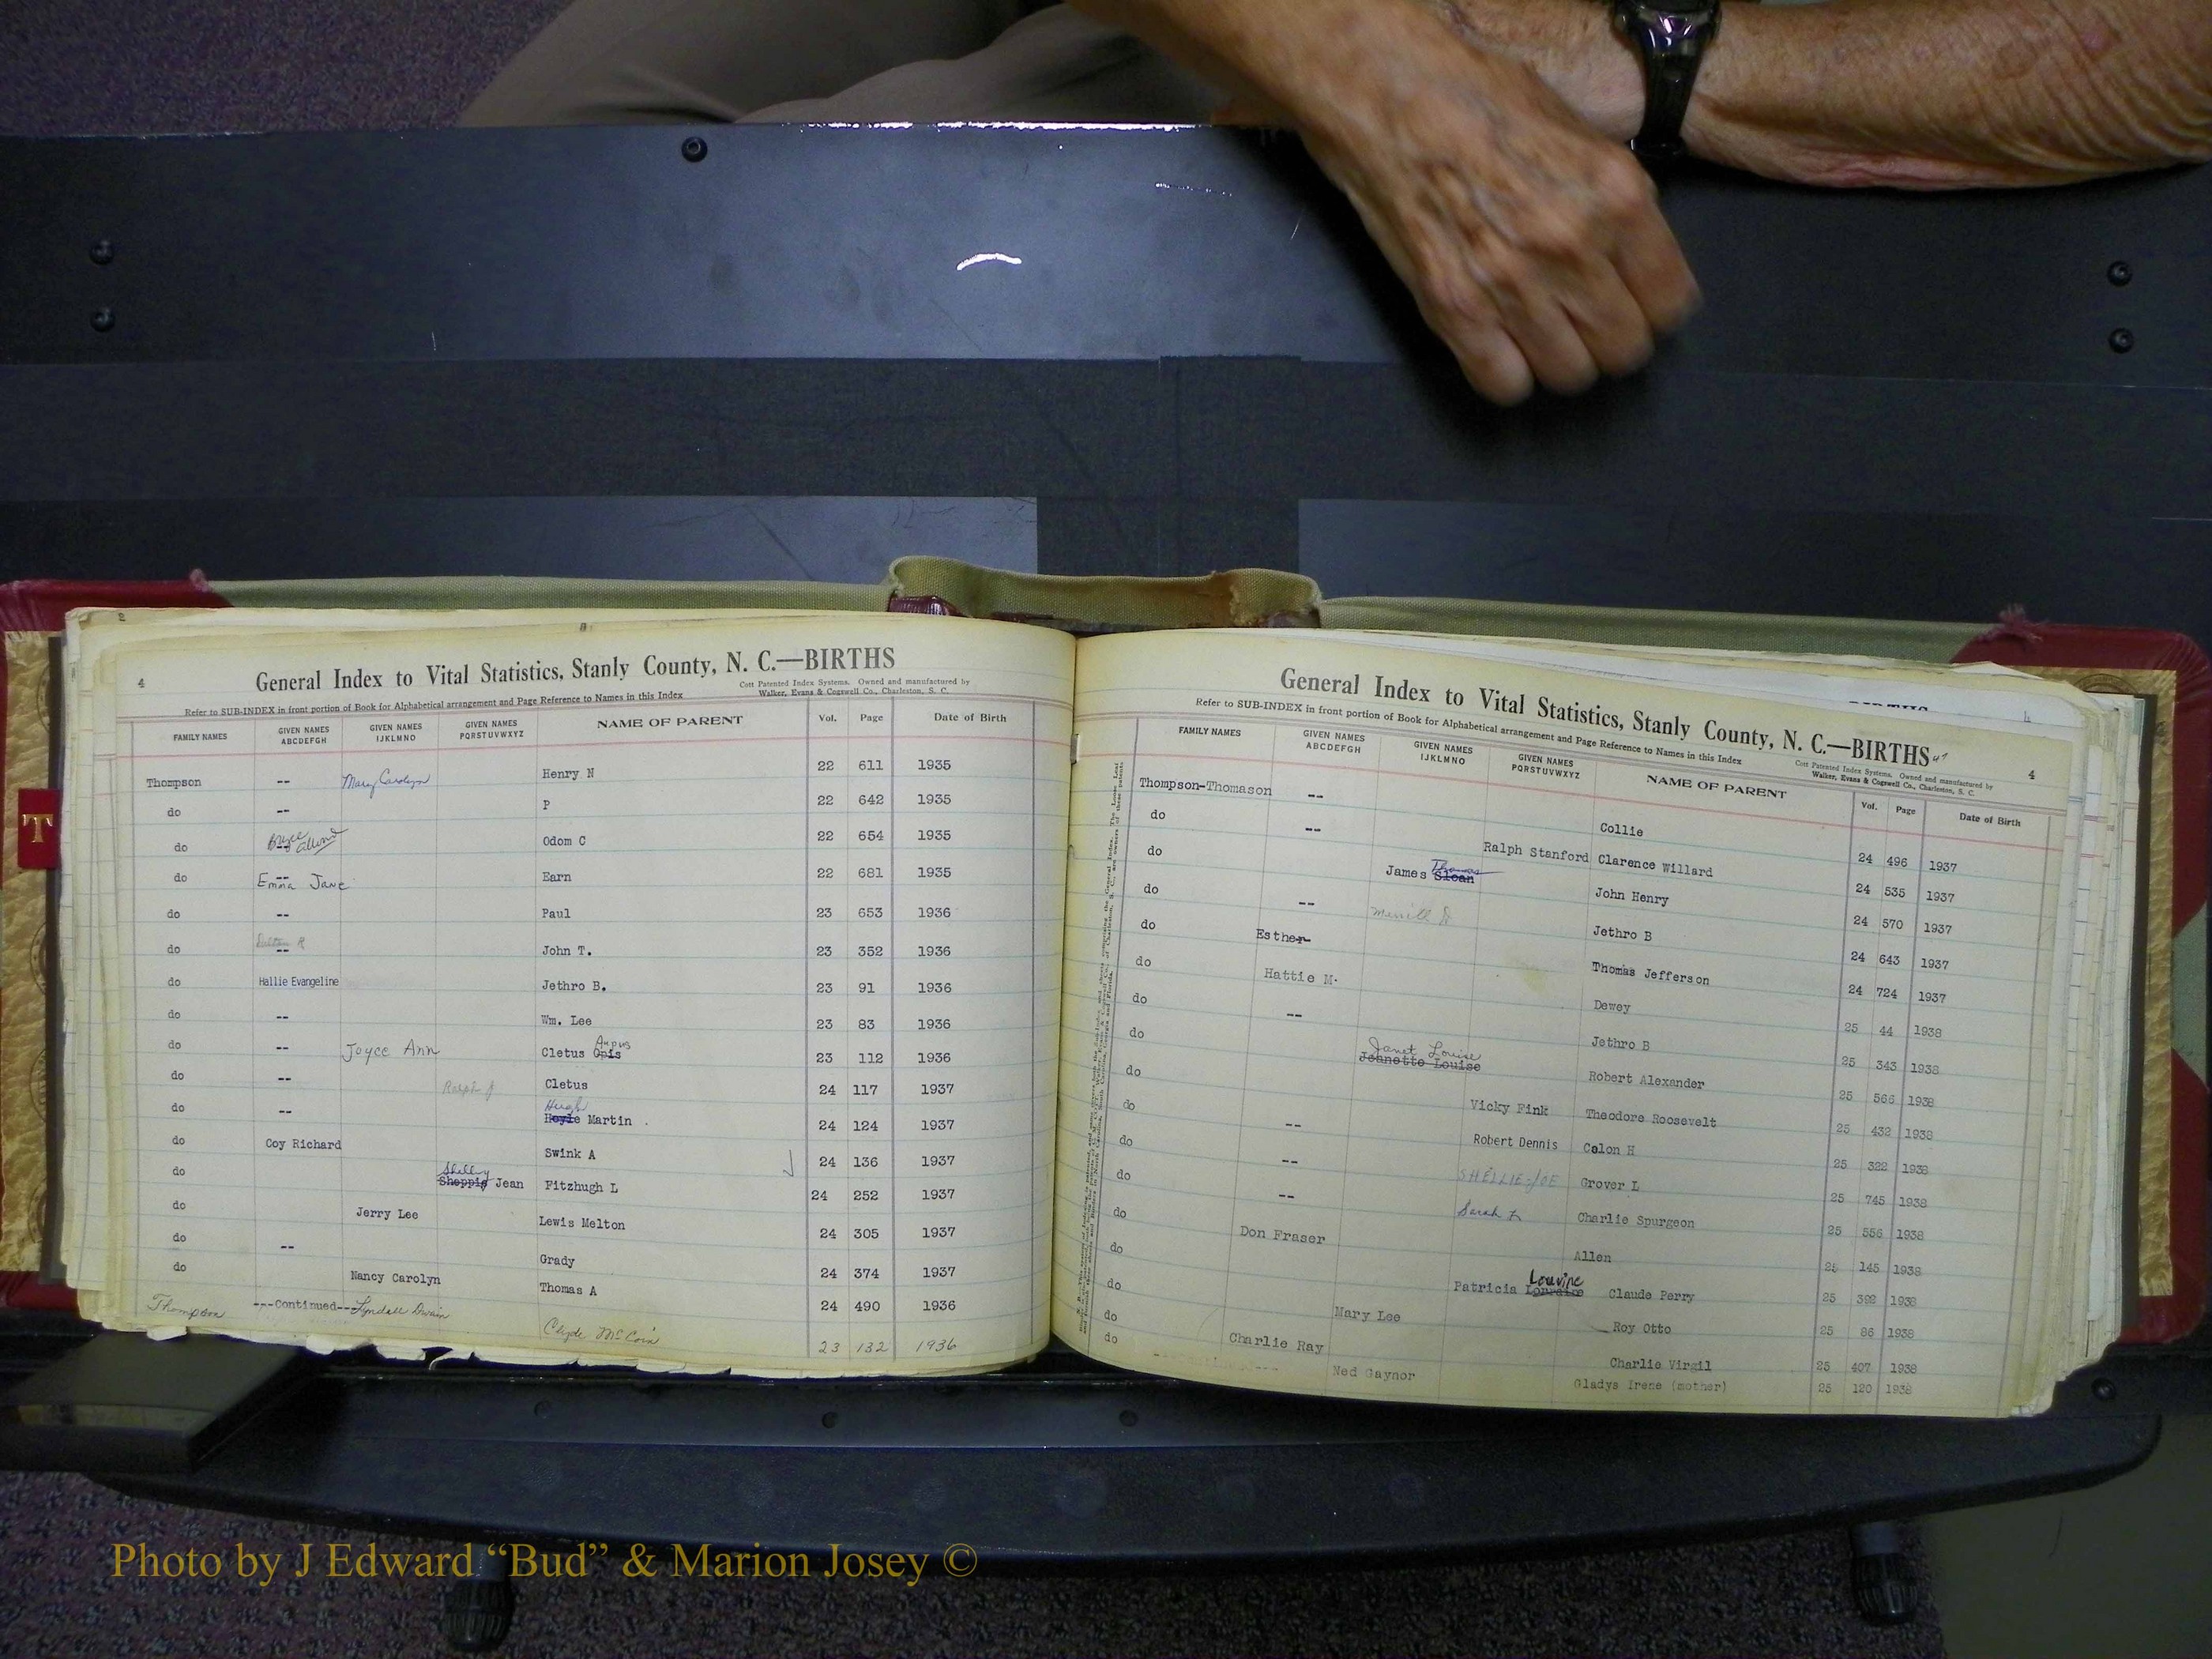 4
General Index to Vital Statistics, Stanly County, N. C.—BIRTHS
Cott Patented Index Systems. Owned and manufactured by
Refer to SUB-INDEX in front portion of Book for Alphabetical arrangement and Page Reference to Names in this Index
Walker, Evans & Cogswell Co., Charleston, S. C.
FAMILY NAMES GIVEN NAMES ABCDEFGH GIVEN NAMES IJKLMNO GIVEN NAMES PQRSTUVWXYZ NAME OF PARENT Vol. Page Date of Birth
Thompson -- Mary Carolyn Henry N 22 611 1935
do -- P 22 642 1935
do -- Odom C 22 654 1935
do -- Emma Jane Earn 22 681 1935
do -- Paul 23 653 1936
do -- John T. 23 352 1936
do Hallie Evangeline Jethro B. 23 91 1936
do -- Wm. Lee 23 83 1936
do -- Joyce Ann Cletus 23 112 1936
do -- Ralph J Cletus 24 117 1937
do -- Hugh Hoyle Martin 24 124 1937
do Coy Richard Swink A 24 136 1937
do Shelby Sheppie Jean Fitzhugh L 24 252 1937
do Jerry Lee Lewis Melton 24 305 1937
do -- Grady 24 374 1937
do Nancy Carolyn Thomas A 24 490 1936
Thompson ---Continued-- Lyndall Dwain Clyde McCoin 23 132 1936
T
General Index to Vital Statistics, Stanly County, N. C.—BIRTHS
4
Refer to SUB-INDEX in front portion of Book for Alphabetical arrangement and Page Reference to Names in this Index
Cott Patented Index Systems. Owned and manufactured by
Walker, Evans & Cogswell Co., Charleston, S. C.
FAMILY NAMES GIVEN NAMES ABCDEFGH GIVEN NAMES IJKLMNO GIVEN NAMES PQRSTUVWXYZ NAME OF PARENT Vol. Page Date of Birth
Thompson-Thomason -- Collie 24 496 1937
do -- Ralph Stanford Clarence Willard 24 535 1937
do James Thomas Sloan John Henry 24 570 1937
do -- Merrill D Jethro B 24 643 1937
do Esther Thomas Jefferson 24 724 1937
do Hattie M. Dewey 25 44 1938
do -- Jethro B 25 343 1938
do Janet Louise Jeanette Louise Robert Alexander 25 566 1938
do Vicky Fink Theodore Roosevelt 25 432 1938
do -- Robert Dennis Colon H 25 322 1938
do -- SHELLIE JOE Grover L 25 745 1938
do -- Sarah F Charlie Spurgeon 25 556 1938
do Don Fraser Allen 25 145 1938
do Patricia Louvine Lorraine Claude Perry 25 392 1938
do Mary Lee Roy Otto 25 86 1938
do Charlie Ray Charlie Virgil 25 407 1938
do Ned Gaynor Gladys Irene (mother) 25 120 1938
Photo by J Edward “Bud” & Marion Josey ©